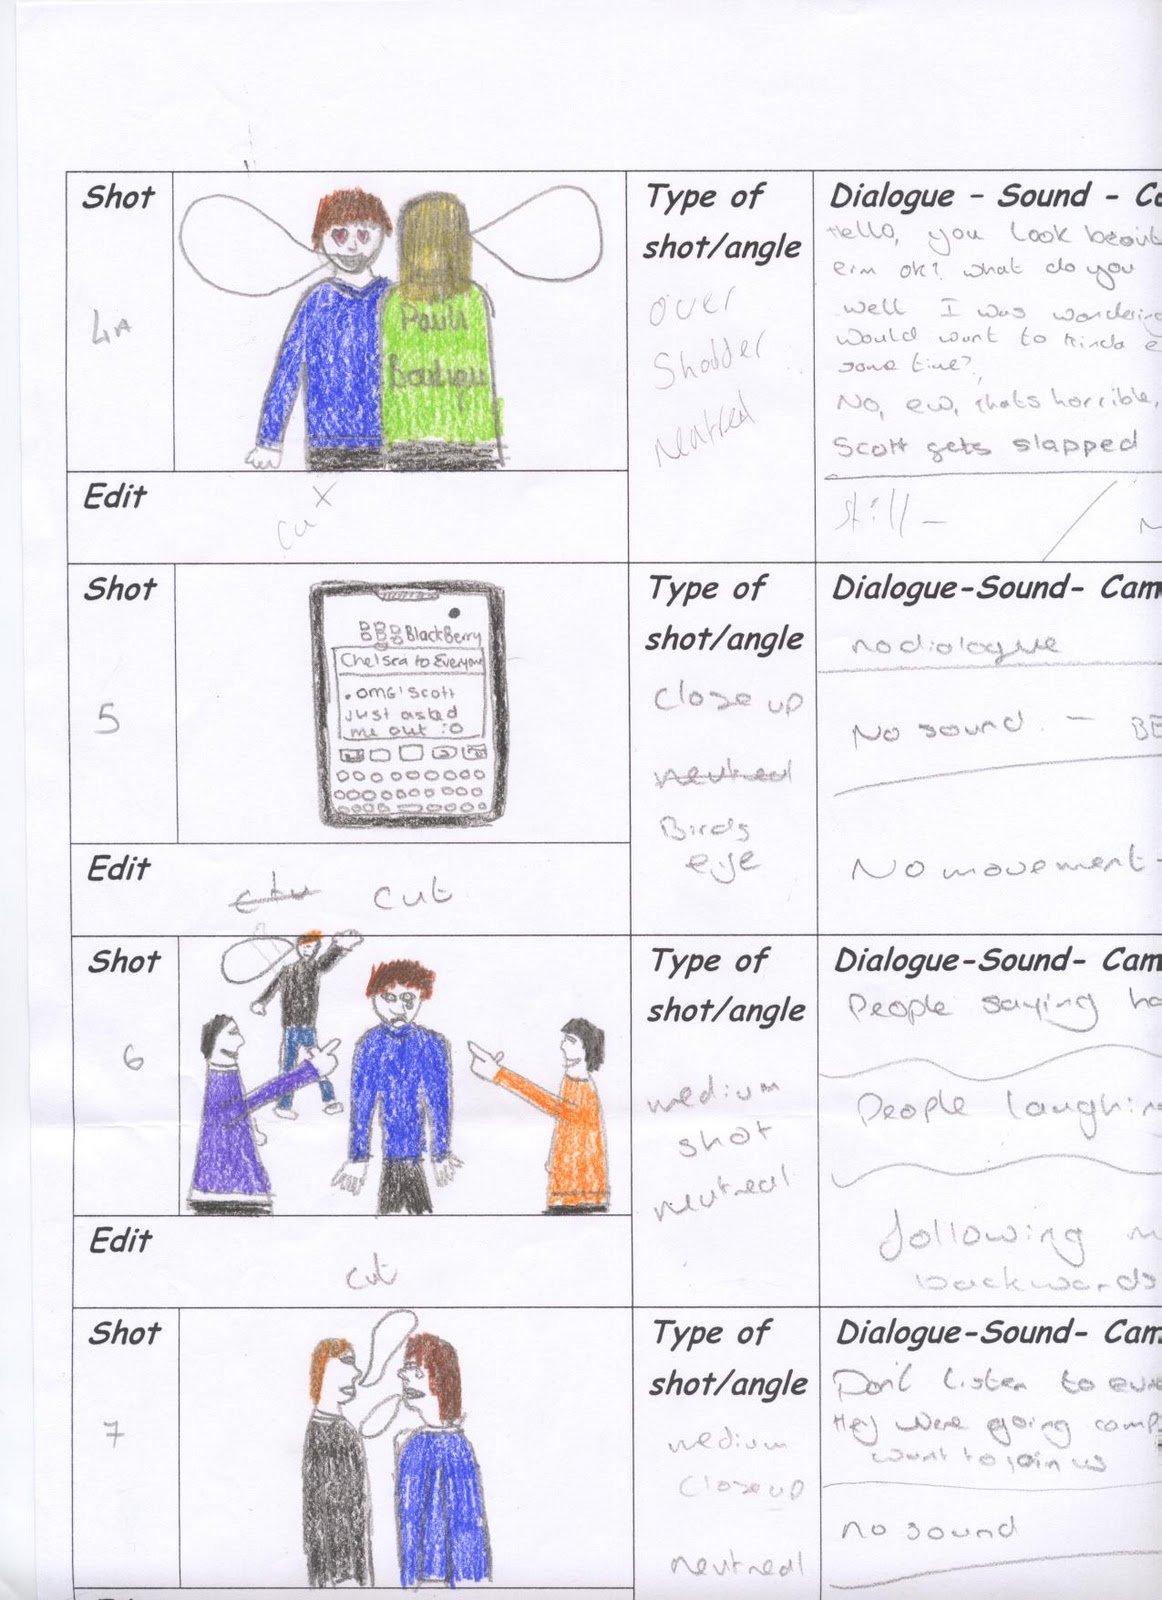 Shot
4A
Pauls
Boutique
Type of
shot/angle
over
Sholder
neutreal
Dialogue - Sound - Co
Hello, you look beaut
erm ok? what do you
well I was wondering
would want to kinda
some time?,
No, ew, thats horrible,
Scott gets slapped
still -
Edit
cut
Shot
5
BlackBerry
Chelsea to Everyone
. OMG! Scott
just asked
me out :O
Type of
shot/angle
Close up
neutreal
Birds
eye
Dialogue-Sound- Cam
no diologue
No sound. - BE
No movement -
Edit
cut
Shot
6
Type of
shot/angle
medium
shot
neutreal
Dialogue-Sound- Cam
People saying ha
People laughing
following m
backwards
Edit
cut
Shot
7
Type of
shot/angle
medium
Close up
neutreal
Dialogue-Sound- Cam
Don't listen to
Hey were going camp
want to join us
no sound